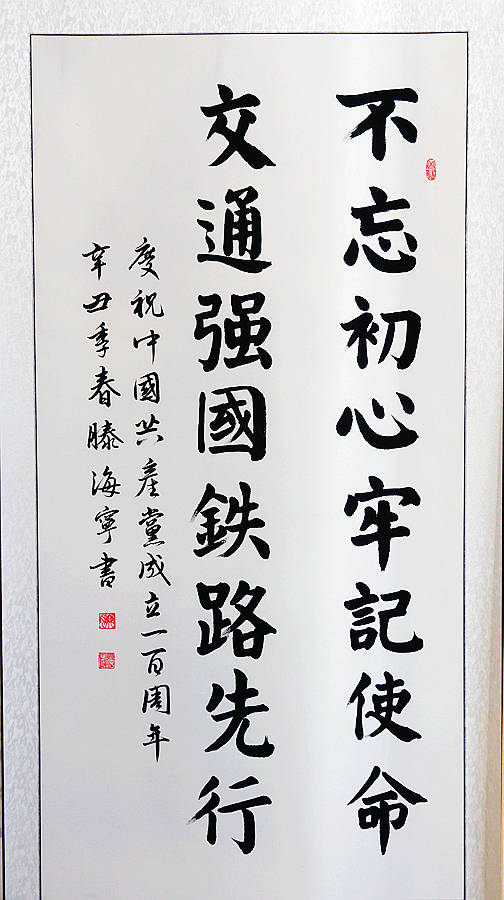 不忘初心牢記使命
交通强國鉄路先行
慶祝中國共產黨成立一百周年
辛丑季春滕海寧書